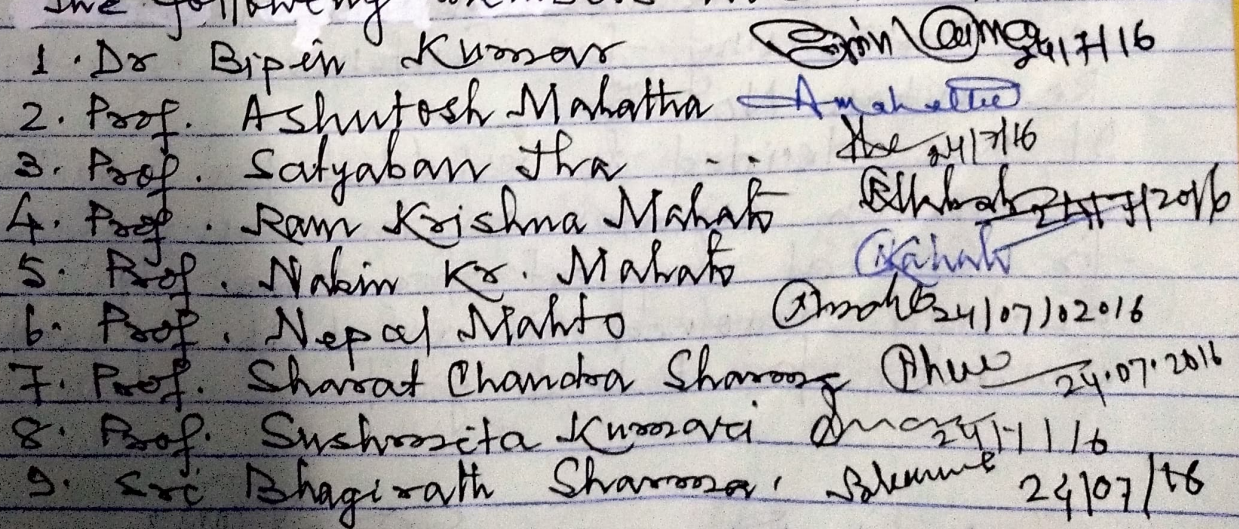 The following members
1. Dr Bipin Kumar 24/7/16
2. Prof. Ashutosh Mahatha Amahatha
3. Prof. Satyaban Jha .. 24/7/16
4. Prof. Ram Krishna Mahato 24/7/2016
5. Prof. Nabin Kr. Mahato
6. Prof. Nepal Mahto 24/07/02016
7. Prof. Sharat Chandra Sharma 24.07.2016
8. Prof. Sushmita Kumari 24/7/16
9. Sri Bhagirath Sharma. 24/07/16